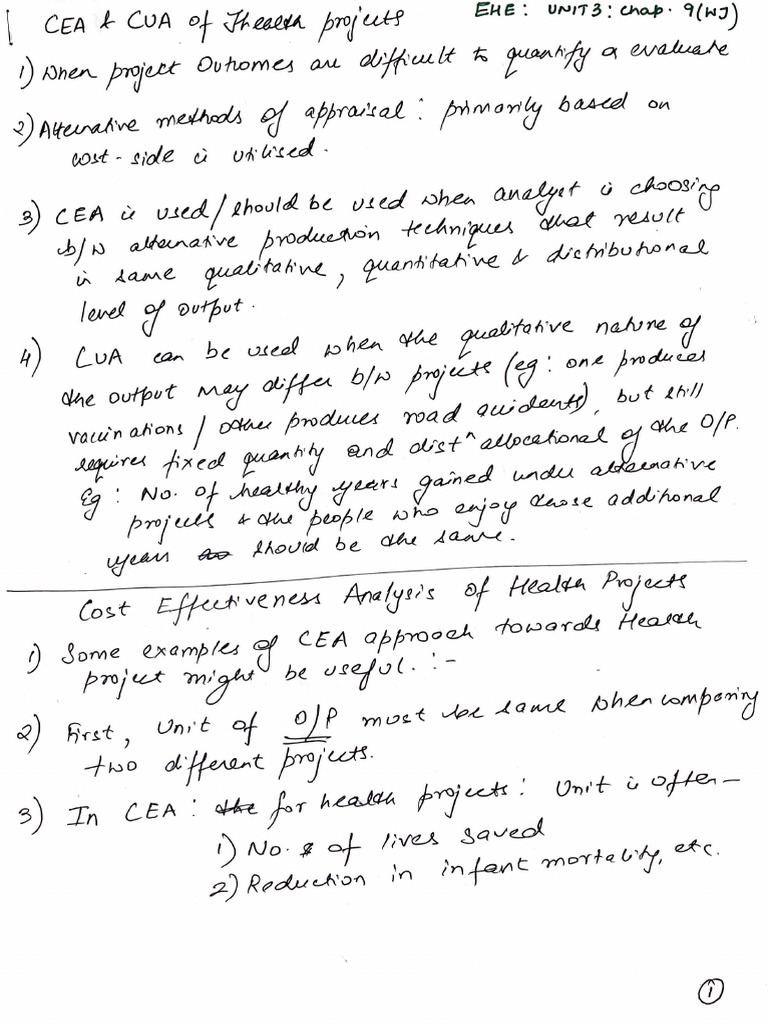 CEA & CUA of Health projects
EHE: UNIT 3: Chap. 9 (WJ)
1) When project Outcomes are difficult to quantify or evaluate
2) Alternative methods of appraisal: primarily based on
cost-side is utilised.
3) CEA is used/should be used when analyst is choosing
b/w alternative production techniques that result
in same qualitative, quantitative & distributional
level of output.
4) CUA can be used when the qualitative nature of
the output may differ b/w projects (eg: one produces
vaccinations / other produces road accidents), but still
requires fixed quantity and distⁿ allocational of the O/P.
Eg: No. of healthy years gained under alternative
projects & the people who enjoy those additional
years should be the same.
Cost Effectiveness Analysis of Health Projects
1) Some examples of CEA approach towards Health
project might be useful. :-
2) First, Unit of O/P must be same when comparing
two different projects.
3) In CEA: the for health projects: Unit is often—
1) No. of lives saved
2) Reduction in infant mortality, etc.
1